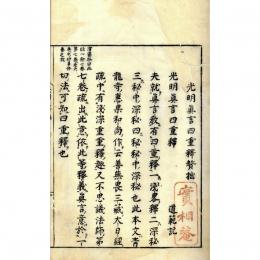 光明真言四重釋贅拙
道範記
光明真言四重釋
夫就真言教有四重釋一淺畧釋二深秘
三秘中深秘四秘秘中深秘也此本文青
龍寺惠果和尚作云善無畏三藏大日經
疏中有淺深重重釋趣又不思議法師第
七卷疏出此意依此等釋義真言意於一
切法可知四重釋也
實相庵